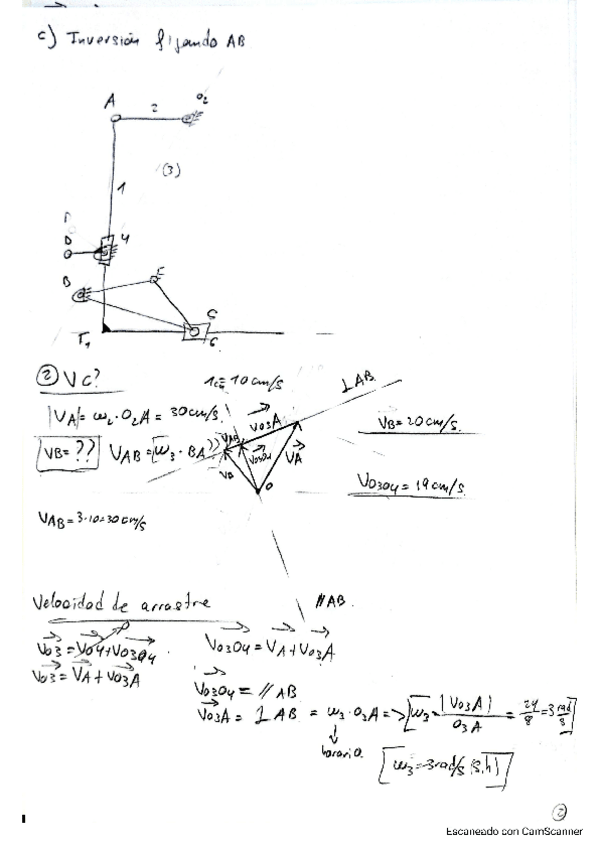 c) Inversión fijando AB
A
2
O2
(3)
1
D
4
B
E
C
6
② Vc?
1c = 10 cm/s
⊥AB
|VA| = ω2 · O2A = 30 cm/s.
VO3A
VB = 20 cm/s.
VB = ??
VAB = ω3 · BA
VAB
VO3O4
VA
VB
O
VO3O4 = 19 cm/s.
VAB = 3·10 = 30 cm/s
Velocidad de arrastre
// AB.
O
VO3 = VO4 + VO3O4
VO3O4 = VA + VO3A
VO3 = VA + VO3A
VO3O4 = // AB
VO3A = ⊥ AB = ω3 · O3A => ω3 = |VO3A| / O3A = 24/8 = 3 rad/s
horario.
[ω3 = 3 rad/s (s.h)]
②
Escaneado con CamScanner